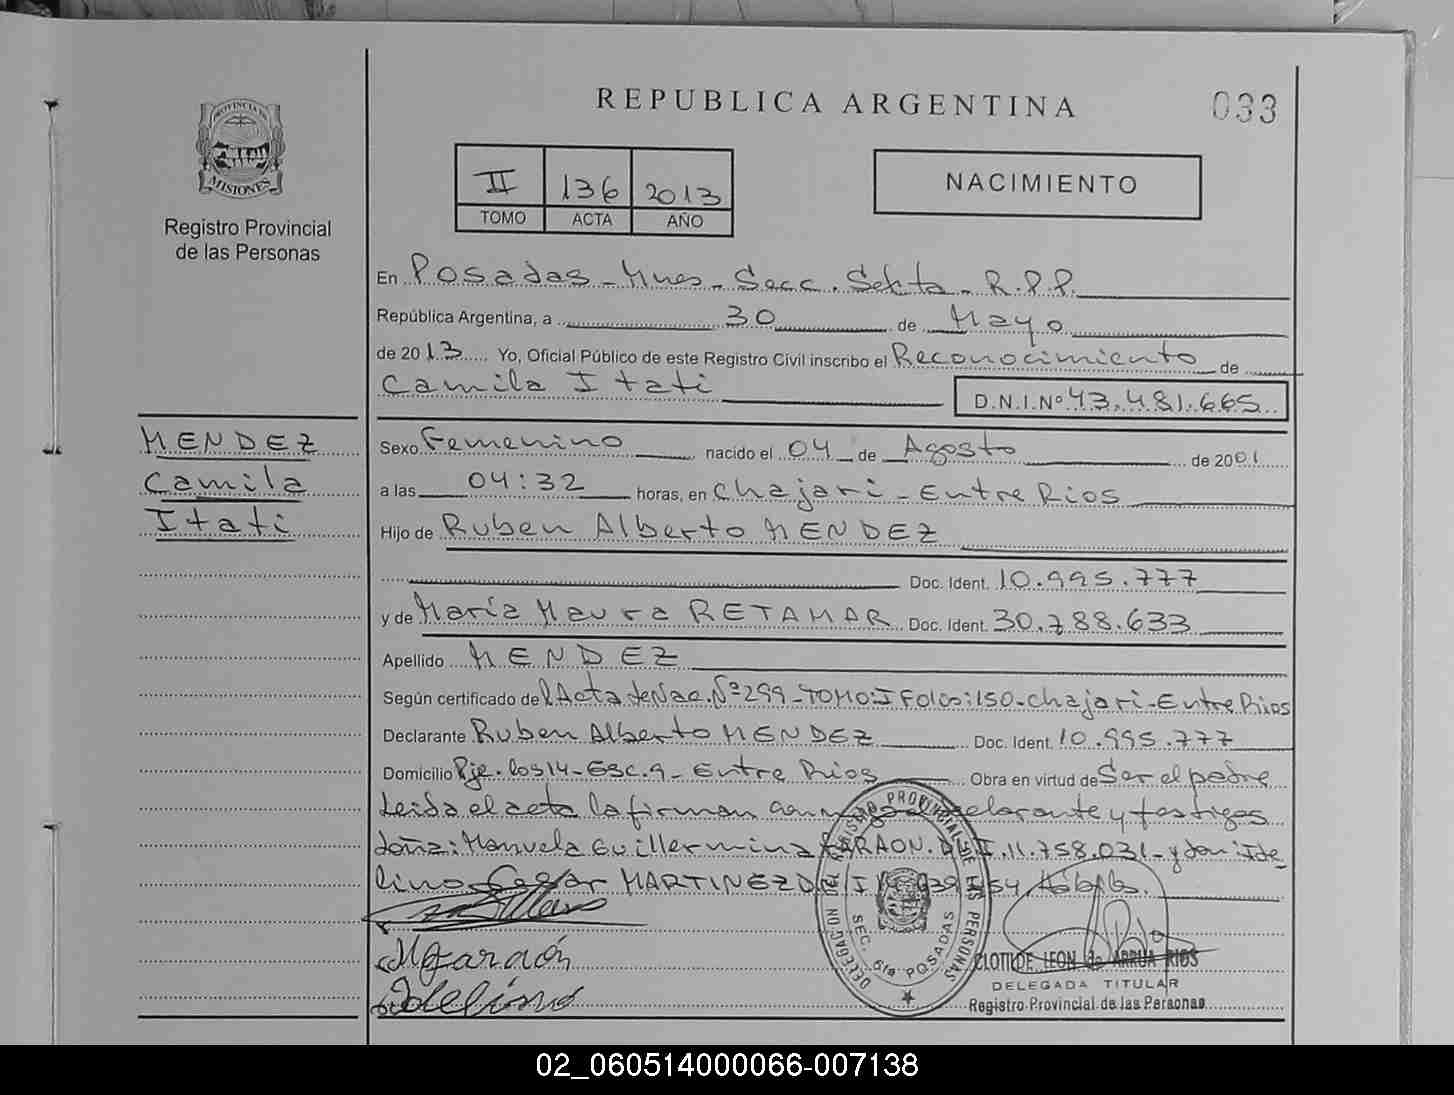 REPUBLICA ARGENTINA
033
PROVINCIA DE MISIONES
Registro Provincial
de las Personas
II 136 2013
TOMO ACTA AÑO
NACIMIENTO
En Posadas - Mnes - Secc. Sexta - R.P.P.
República Argentina, a 30 de Mayo
de 2013 Yo, Oficial Público de este Registro Civil inscribo el Reconocimiento de
Camila Itati D.N.I.Nº 43.481.665
MENDEZ
Camila
Itati
Sexo Femenino nacido el 04 de Agosto de 2001
a las 04:32 horas, en Chajari - Entre Rios
Hijo de Ruben Alberto MENDEZ
Doc. Ident. 10.995.777
y de María Maura RETAMAR Doc. Ident. 30.788.633
Apellido MENDEZ
Según certificado del Acta de Nac. Nº 299 - TOMO: I Folio: 150 - Chajari - Entre Rios
Declarante Ruben Alberto MENDEZ Doc. Ident. 10.995.777
Domicilio Pje. los 14 - Esc. 9 - Entre Rios Obra en virtud de Ser el padre
Leida el acta la firman conmigo el declarante y testigos
doña: Manuela Guillermina FARAON. DNI. 11.758.031 - y don Ide
lino Cesar MARTINEZ DNI
DELEGACION DEL REGISTRO PROVINCIAL DE LAS PERSONAS
SEC. 6ta POSADAS
CLOTILDE LEON de ARRUA RIOS
DELEGADA TITULAR
Registro Provincial de las Personas
02_060514000066-007138